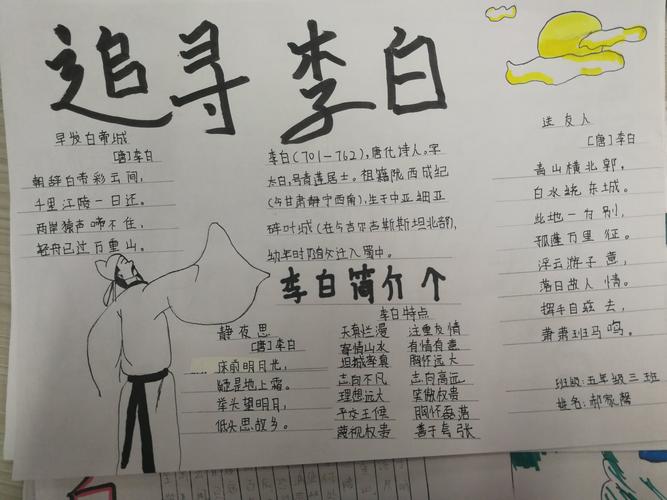 追寻李白
早发白帝城
[唐]李白
朝辞白帝彩云间，
千里江陵一日还。
两岸猿声啼不住，
轻舟已过万重山。
李白(701-762)，唐代诗人。字
太白，号青莲居士。祖籍陇西成纪
(今甘肃静宁西南)，生于中亚细亚
碎叶城(在今吉尔吉斯斯坦北部)，
幼年时随父迁入蜀中。
李白简介个
送友人
[唐]李白
青山横北郭，
白水绕东城。
此地一为别，
孤蓬万里征。
浮云游子意，
落日故人情。
挥手自兹去，
萧萧班马鸣。
静夜思
[唐]李白
床前明月光，
疑是地上霜。
举头望明月，
低头思故乡。
李白特点
天真烂漫 注重友情
寄情山水 有情有意
坦诚率真 胸怀远大
志向不凡 志向高远
理想远大 笑傲权贵
平交王侯 胸怀磊落
蔑视权贵 善于夸张
班级：五年级三班
姓名：郝